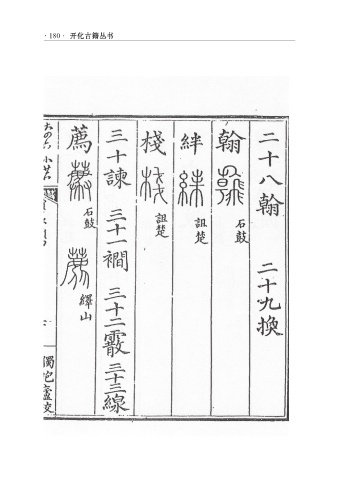 · 180 · 开化古籍丛书
二十八翰 二十九換
翰 石鼓
絆 詛楚
棧 詛楚
三十諫 三十一襇 三十二霰 三十三線
薦 石鼓 繹山